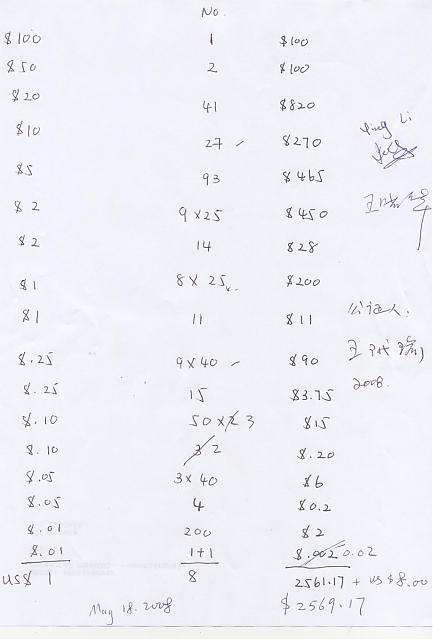 No.
$100 1 $100
$50 2 $100
$20 41 $820
$10 27 $270
$5 93 $465
$2 9 x 25 $450
$2 14 $28
$1 8 x 25 $200
$1 11 $11
$.25 9 x 40 $90
$.25 15 $3.75
$.10 50 x 2 3 $15
$.10 3 2 $.20
$.05 3 x 40 $6
$.05 4 $0.2
$.01 200 $2
$.01 1+1 $.002 0.02
US$ 1 8 2561.17 + US $8.00
May 18. 2008 $2569.17
Ying Li
公证人:
2008.